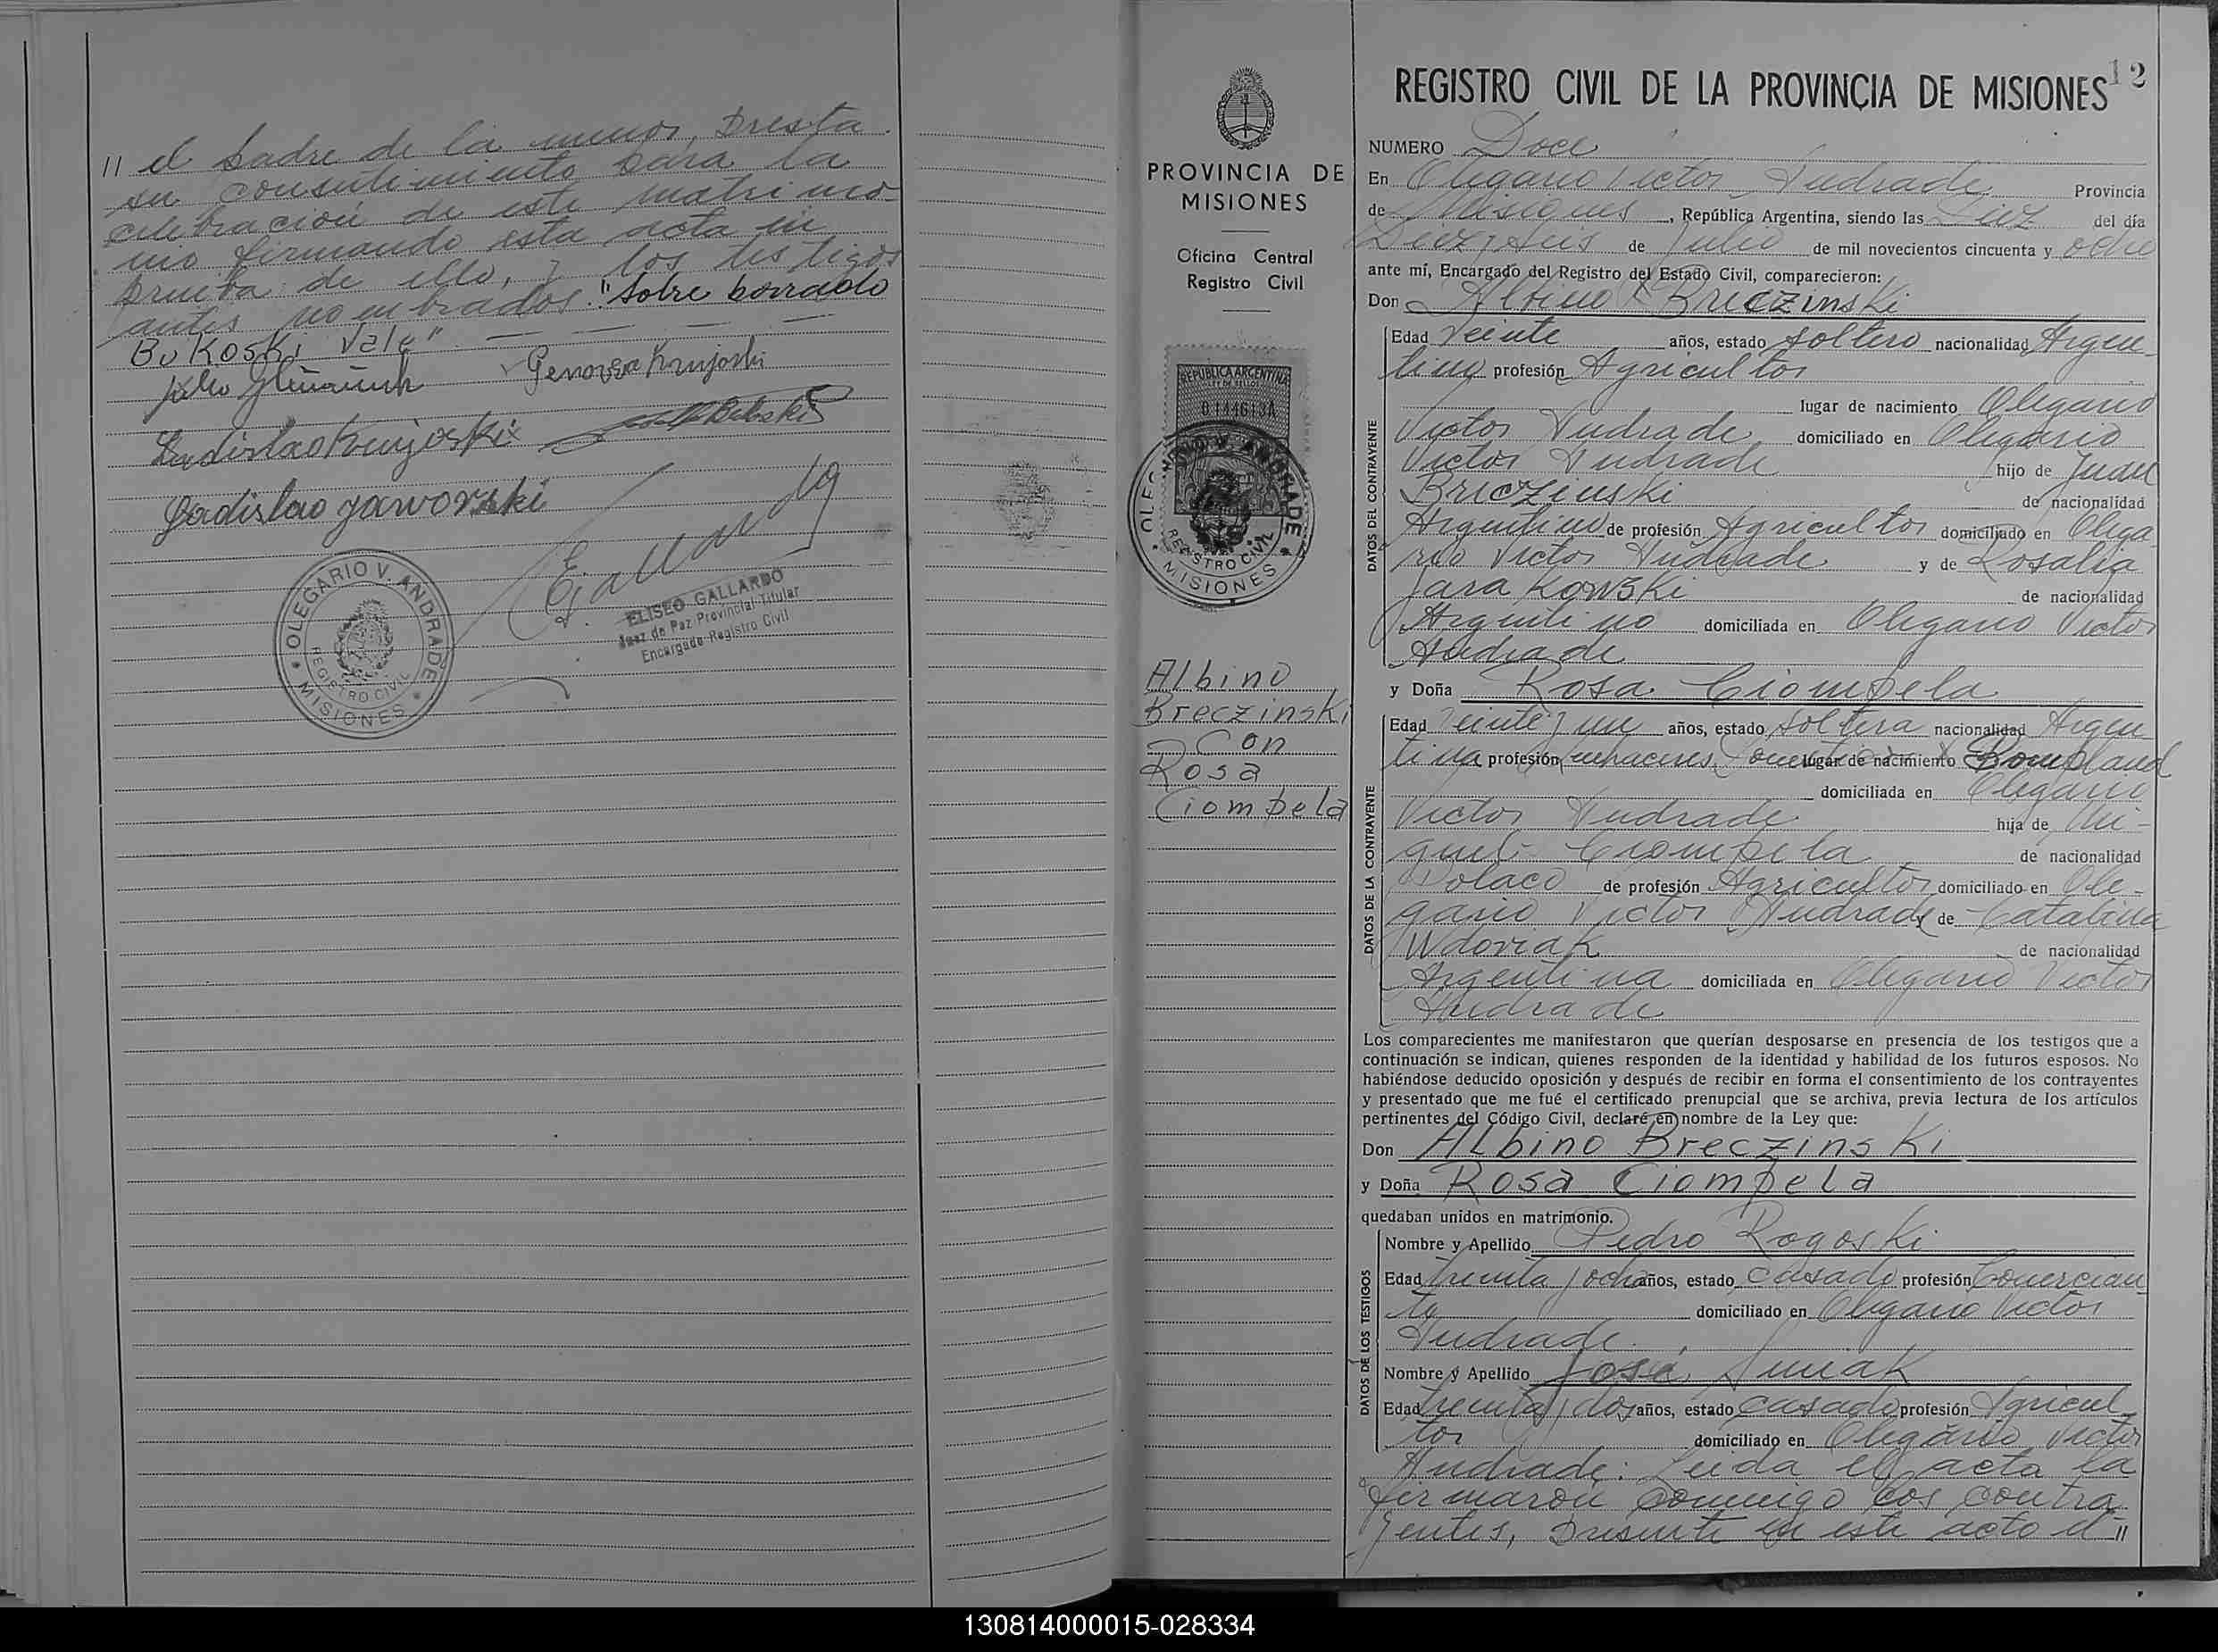 // el padre de la menor, presta
su consentimiento para la
celebración de este matrimo-
nio firmando esta acta en
prueba de ello, y los testigos
antes nombrados. "Sobre borrado
Bukoski Vale"
Genoveva Krujoski
Ladislao Krujoski
Ladislao Jaworski
OLEGARIO V. ANDRADE
REGISTRO CIVIL
MISIONES
ELISEO GALLARDO
Juez de Paz Provincial Titular
Encargado Registro Civil
PROVINCIA DE
MISIONES
Oficina Central
Registro Civil
REPUBLICA ARGENTINA
LEY DE SELLOS
OLEGARIO V. ANDRADE
REGISTRO CIVIL
MISIONES
Albino
Breczinski
Con
Rosa
Ciompela
12
REGISTRO CIVIL DE LA PROVINCIA DE MISIONES
NUMERO Doce
En Olegario Victor Andrade Provincia
de Misiones, República Argentina, siendo las Diez del día
Diez y seis de Julio de mil novecientos cincuenta y ocho
ante mí, Encargado del Registro del Estado Civil, comparecieron:
Don Albino Breczinski
DATOS DEL CONTRAYENTE
Edad Veinte años, estado soltero nacionalidad Argen-
tino profesión Agricultor
lugar de nacimiento Olegario
Victor Andrade domiciliado en Olegario
Victor Andrade hijo de Juan
Breczinski de nacionalidad
Argentino de profesión Agricultor domiciliado en Olega-
rio Victor Andrade y de Rosalia
Jarakowski de nacionalidad
Argentino domiciliada en Olegario Victor
Andrade
y Doña Rosa Ciompela
DATOS DE LA CONTRAYENTE
Edad Veinte y un años, estado soltera nacionalidad Argen-
tina profesión quehaceres domesticos lugar de nacimiento Bompland
domiciliada en Olegario
Victor Andrade hija de Mi-
guel Ciompela de nacionalidad
Polaco de profesión Agricultor domiciliado en Ole-
gario Victor Andrade y de Catalina
Wdoviak de nacionalidad
Argentina domiciliada en Olegario Victor
Andrade
Los comparecientes me manifestaron que querían desposarse en presencia de los testigos que a
continuación se indican, quienes responden de la identidad y habilidad de los futuros esposos. No
habiéndose deducido oposición y después de recibir en forma el consentimiento de los contrayentes
y presentado que me fué el certificado prenupcial que se archiva, previa lectura de los artículos
pertinentes del Código Civil, declaré en nombre de la Ley que:
Don Albino Breczinski
y Doña Rosa Ciompela
quedaban unidos en matrimonio.
DATOS DE LOS TESTIGOS
Nombre y Apellido Pedro Rogoski
Edad treinta y ocho años, estado Casado profesión Comercian
te domiciliado en Olegario Victor
Andrade.
Nombre y Apellido José
Edad treinta y dos años, estado Casado profesión Agricul
tor domiciliado en Olegario Victor
Andrade: Leida el acta la
firmaron conmigo los contra-
yentes, presente en este acto el //
130814000015-028334